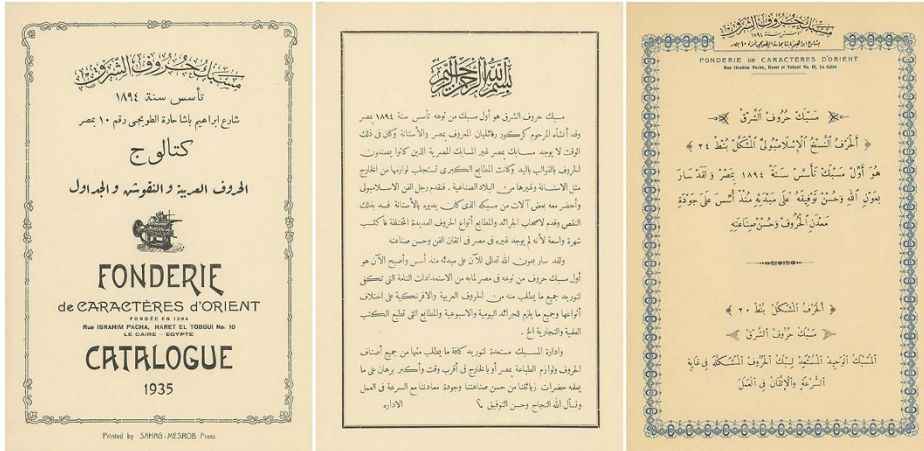 مسبك حروف الشرق
تأسس سنة ١٨٩٤
شارع ابراهيم باشا حارة الطوبجى رقم ١٠ بمصر
كتالوج
الحروف العربية و النقوش و الجداول
FONDERIE
de CARACTÈRES d'ORIENT
FONDÉE EN 1894
Rue IBRAHIM PACHA, HARET EL TOBGUI No. 10
LE CAIRE – EGYPTE
CATALOGUE
1935
Printed by SAHAG-MESROB Press
بسم الله الرحمن الرحيم
مسبك حروف الشرق هو أول مسبك من نوعه تأسس سنة ١٨٩٤ بمصر
وقد أنشأه المرحوم كركور رفائليان المعروف بمصر والأستانة وكان فى ذلك
الوقت لا يوجد مسابك بمصر غير المسابك المصرية الذين كانوا يصنعون
الحروف بالقوالب باليد وكانت المطابع الكبرى تستجلب لوازمها من الخارج
مثل الاستانة وغيرها من البلاد الصناعية . فتقدم رجل الفن الاسلامبولى
وأحضر معه بعض آلات من مسبكه الذى كان يديره بالأستانة فسد بذلك
النقص وقدم لاصحاب الجرائد والمطابع أنواع الحروف العديدة المختلفة فاكتسب
شهرة واسعة لأنه لم يوجد غيره فى مصر فى اتقان الفن وحسن صناعته
ولقد سار بعون الله تعالى للآن على مبدئه منذ أسس وأصبح الآن هو
أول مسبك حروف من نوعه فى مصر لما به من الاستعدادات التامة التى تكفى
لتوريد جميع ما يطلب منه من الحروف العربية والافرنكية على اختلاف
أنواعها وجميع ما يلزم للجرائد اليومية والاسبوعية والمطابع التى تطبع الكتب
العلمية والتجارية الخ .
وادارة المسبك مستعدة لتوريد كافة ما يطلب منها من جميع أصناف
الحروف ولوازم الطباعة بمصر أو بالخارج فى أقرب وقت وأكبر برهان على ما
يعلمه حضرات زبائننا من حسن صناعتنا وجودة معادننا مع السرعة فى العمل
ونسأل الله النجاح وحسن التوفيق
الاداره
مسبك حروف الشرق
تأسس سنة ١٨٩٤
بشارع ابراهيم باشا بحارة الطوبجى نمرة ١٠ بمصر
FONDERIE DE CARACTÈRES D'ORIENT
Rue Ibrahim Pacha, Haret el Tobgui No. 10, Le Caire
مَسْبَكُ حُرُوفِ الشَّرْقِ
﴿ اَلْحَرْفُ النَّسْخُ الْإِسْلَامْبُولِىُّ الْمُشَكَّلُ بُنْطُ ٢٤ ﴾
هُوَ أَوَّلُ مَسْبَكٍ تَأَسَّسَ سَنَةَ ١٨٩٤ بِمِصْرَ وَلَقَدْ سَارَ
بِعَوْنِ اللهِ وَحُسْنِ تَوْفِيقِهِ عَلَى مَبْدَئِهِ مُنْذُ أُسِّسَ عَلَى جَوْدَةِ
مَعْدَنِ الْحُرُوفِ وَحُسْنِ صِنَاعَتِهِ
﴿ اَلْحَرْفُ الْمُشَكَّلُ بُنْطُ ٢٠ ﴾
مَسْبَكُ حُرُوفِ الشَّرْقِ
اَلْمَسْبَكُ الْوَحِيدُ الْمُسْتَعِدُّ لِسَبْكِ الْحُرُوفِ الْمُشَكَّلَةِ فِى غَايَةِ
السُّرْعَةِ وَالْإِتْقَانِ فِى الْعَمَلِ